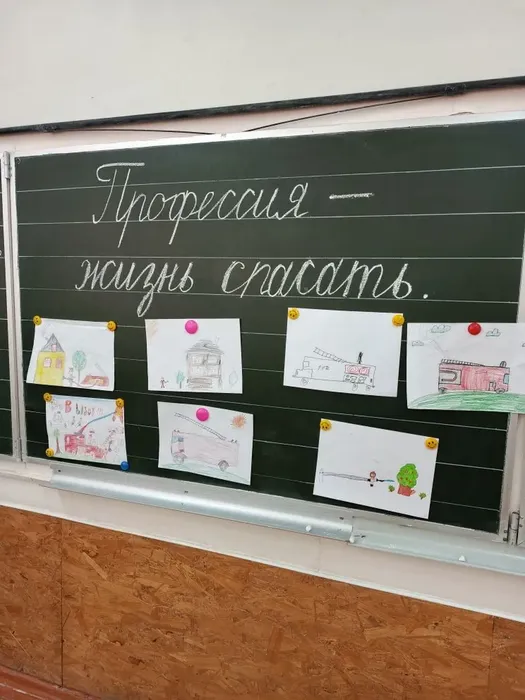 Профессия –
жизнь спасать.